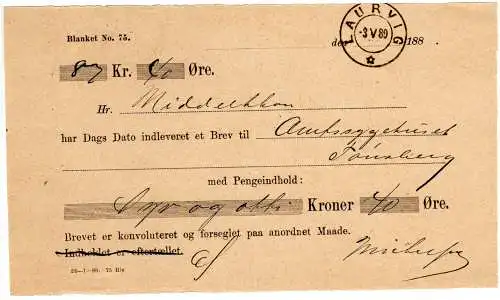 Blanket No. 75.
den 188
LAURVIG
-3 V 89
87 Kr. 40 Øre.
Hr. Middelthon
har Dags Dato indleveret et Brev til Amtssygehuset
Tönsberg
med Pengeindhold:
Syv og otti Kroner 40 Øre.
Brevet er konvoluteret og forseglet paa anordnet Maade.
Indholdet er eftertællet.